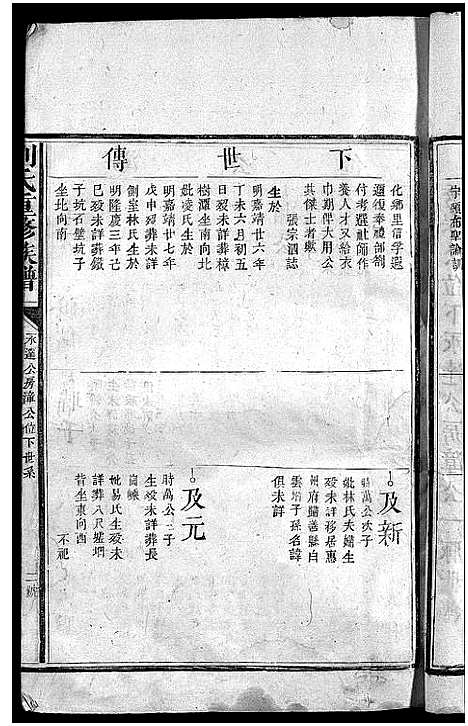 下世傳
化鄉里信學遐
邇復奉禮部劄
付考選社師作
養人才又給衣
巾期俾大用公
其傑士者歟
張宗泗誌
生於
明嘉靖廿六年
丁未六月初五
日歿未詳葬樟
樹潭坐南向北
妣凌氏生於
明嘉靖廿七年
戊申歿葬未詳
側室林氏生於
明隆慶三年己
巳歿未詳葬鐵
子坑石壁坑子
坐北向南
及新
時萬公次子
妣林氏夫婦生
歿未詳移居惠
州府歸善縣白
雲墇子孫名諱
俱未詳
及元
時萬公三子
生歿未詳葬長
崗崠
妣易氏生歿未
詳葬八尺墟墹
背坐東向西
不祀
劉氏重修族譜
永達公房漳公位下世系